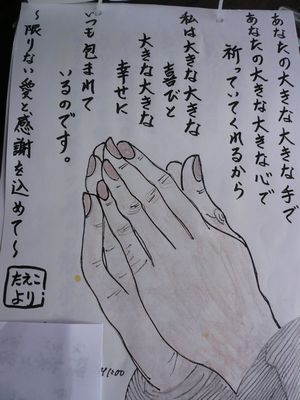 あなたの大きな大きな手で
あなたの大きな大きな心で
祈っていてくれるから
私は大きな大きな
喜びと
大きな大きな
幸せに
いつも包まれて
いるのです。
～限りない愛と感謝を込めて～
たえこ
より